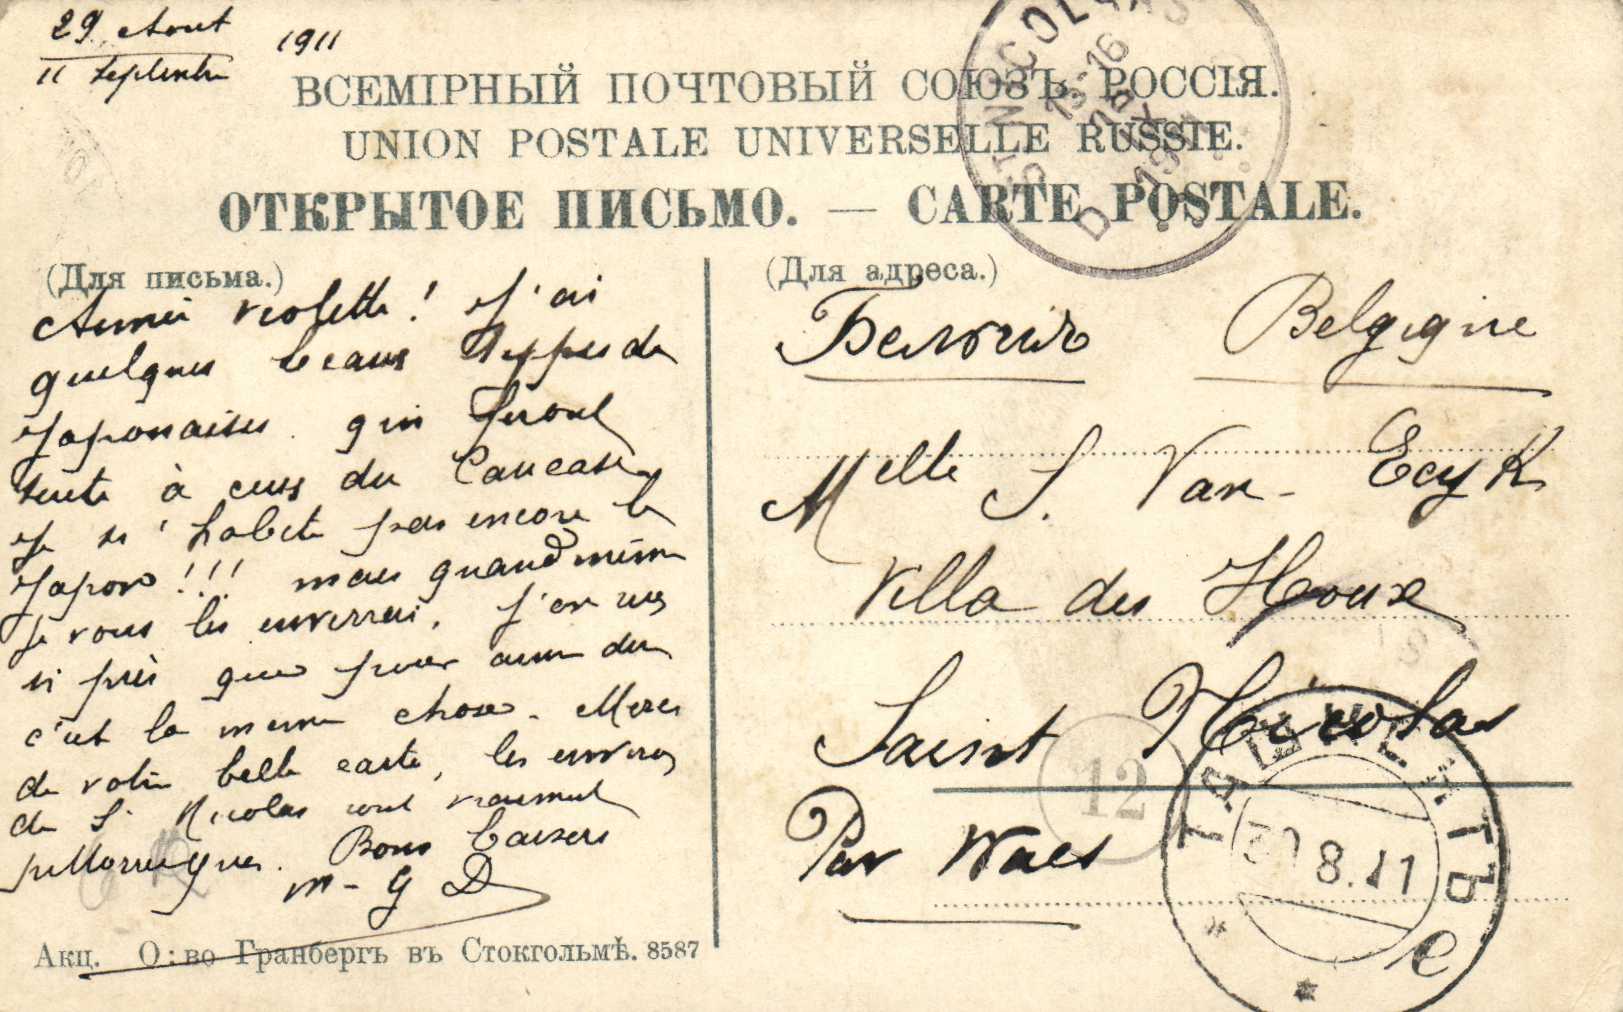 29 Aout 1911
11 Septembre
ВСЕМІРНЫЙ ПОЧТОВЫЙ СОЮЗЪ. РОССІЯ.
UNION POSTALE UNIVERSELLE RUSSIE.
ОТКРЫТОЕ ПИСЬМО. — CARTE POSTALE.
(Для письма.)
Amie Violette! J'ai
quelques beaux types de
Japonaises qui feront
suite à ceux du Caucase
Je n'habite pas encore le
Japon!!! mais quand même
je vous les enverrai, j'en
si près que pour
c'est la meme chose. Merci
de votre belle carte, les environs
de St Nicolas sont vraiment
pittoresques. Bons baisers
M-G D
Акц. О:во Гранбергъ въ Стокгольмѣ. 8587
(Для адреса.)
Бельгія Belgique
Melle S. Van-Ecyk
Villa des Houx
Saint Nicolas
Par Waes
ST NICOLAS
13-16
15
IX
D
12
ТАШКЕНТЪ
30 8.11
е